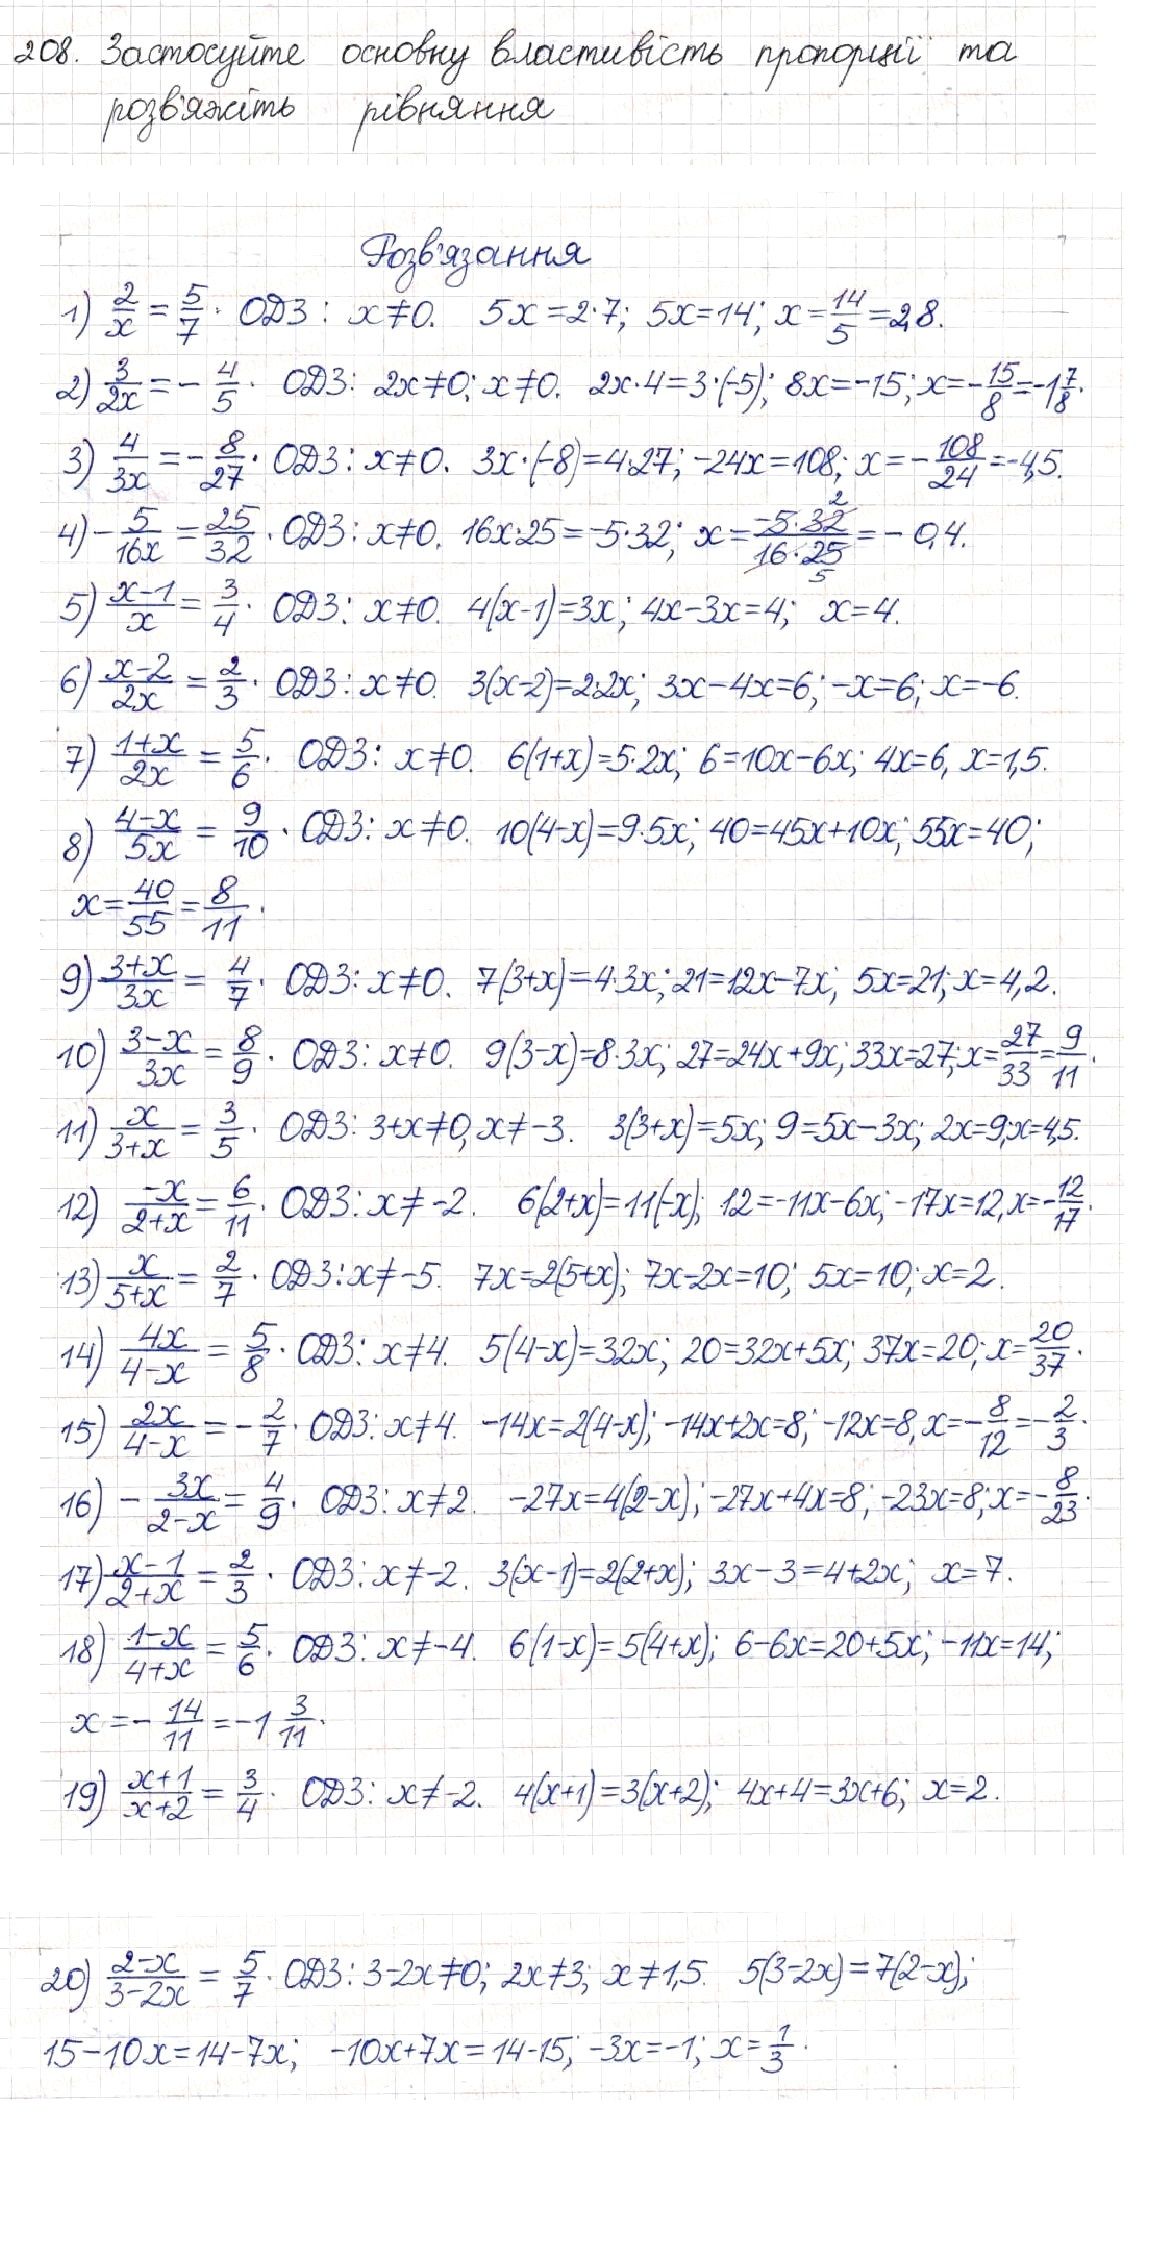 208. Застосуйте основну властивість пропорції та
розв'яжіть рівняння
Розв'язання
1) 2/x = 5/7. ОДЗ: x≠0. 5x=2·7; 5x=14; x=14/5=2,8.
2) 3/2x = -4/5. ОДЗ: 2x≠0; x≠0. 2x·4=3·(-5); 8x=-15; x=-15/8=-1 7/8.
3) 4/3x = -8/27. ОДЗ: x≠0. 3x·(-8)=4·27; -24x=108; x=-108/24=-4,5.
4) -5/16x = 25/32. ОДЗ: x≠0. 16x·25=-5·32; x=-5·32/16·25=-0,4.
5) x-1/x = 3/4. ОДЗ: x≠0. 4(x-1)=3x; 4x-3x=4; x=4.
6) x-2/2x = 2/3. ОДЗ: x≠0. 3(x-2)=2·2x; 3x-4x=6; -x=6; x=-6.
7) 1+x/2x = 5/6. ОДЗ: x≠0. 6(1+x)=5·2x; 6=10x-6x; 4x=6, x=1,5.
8) 4-x/5x = 9/10. ОДЗ: x≠0. 10(4-x)=9·5x; 40=45x+10x; 55x=40;
x=40/55=8/11.
9) 3+x/3x = 4/7. ОДЗ: x≠0. 7(3+x)=4·3x; 21=12x-7x; 5x=21; x=4,2.
10) 3-x/3x = 8/9. ОДЗ: x≠0. 9(3-x)=8·3x; 27=24x+9x; 33x=27; x=27/33=9/11.
11) x/3+x = 3/5. ОДЗ: 3+x≠0, x≠-3. 3(3+x)=5x; 9=5x-3x; 2x=9; x=4,5.
12) -x/2+x = 6/11. ОДЗ: x≠-2. 6(2+x)=11(-x); 12=-11x-6x; -17x=12, x=-12/17.
13) x/5+x = 2/7. ОДЗ: x≠-5. 7x=2(5+x); 7x-2x=10; 5x=10; x=2.
14) 4x/4-x = 5/8. ОДЗ: x≠4. 5(4-x)=32x; 20=32x+5x; 37x=20; x=20/37.
15) 2x/4-x = -2/7. ОДЗ: x≠4. -14x=2(4-x); -14x+2x=8; -12x=8, x=-8/12=-2/3.
16) -3x/2-x = 4/9. ОДЗ: x≠2. -27x=4(2-x); -27x+4x=8; -23x=8; x=-8/23.
17) x-1/2+x = 2/3. ОДЗ: x≠-2. 3(x-1)=2(2+x); 3x-3=4+2x; x=7.
18) 1-x/4+x = 5/6. ОДЗ: x≠-4. 6(1-x)=5(4+x); 6-6x=20+5x; -11x=14;
x=-14/11=-1 3/11.
19) x+1/x+2 = 3/4. ОДЗ: x≠-2. 4(x+1)=3(x+2); 4x+4=3x+6; x=2.
20) 2-x/3-2x = 5/7. ОДЗ: 3-2x≠0; 2x≠3; x≠1,5. 5(3-2x)=7(2-x);
15-10x=14-7x; -10x+7x=14-15; -3x=-1; x=1/3.